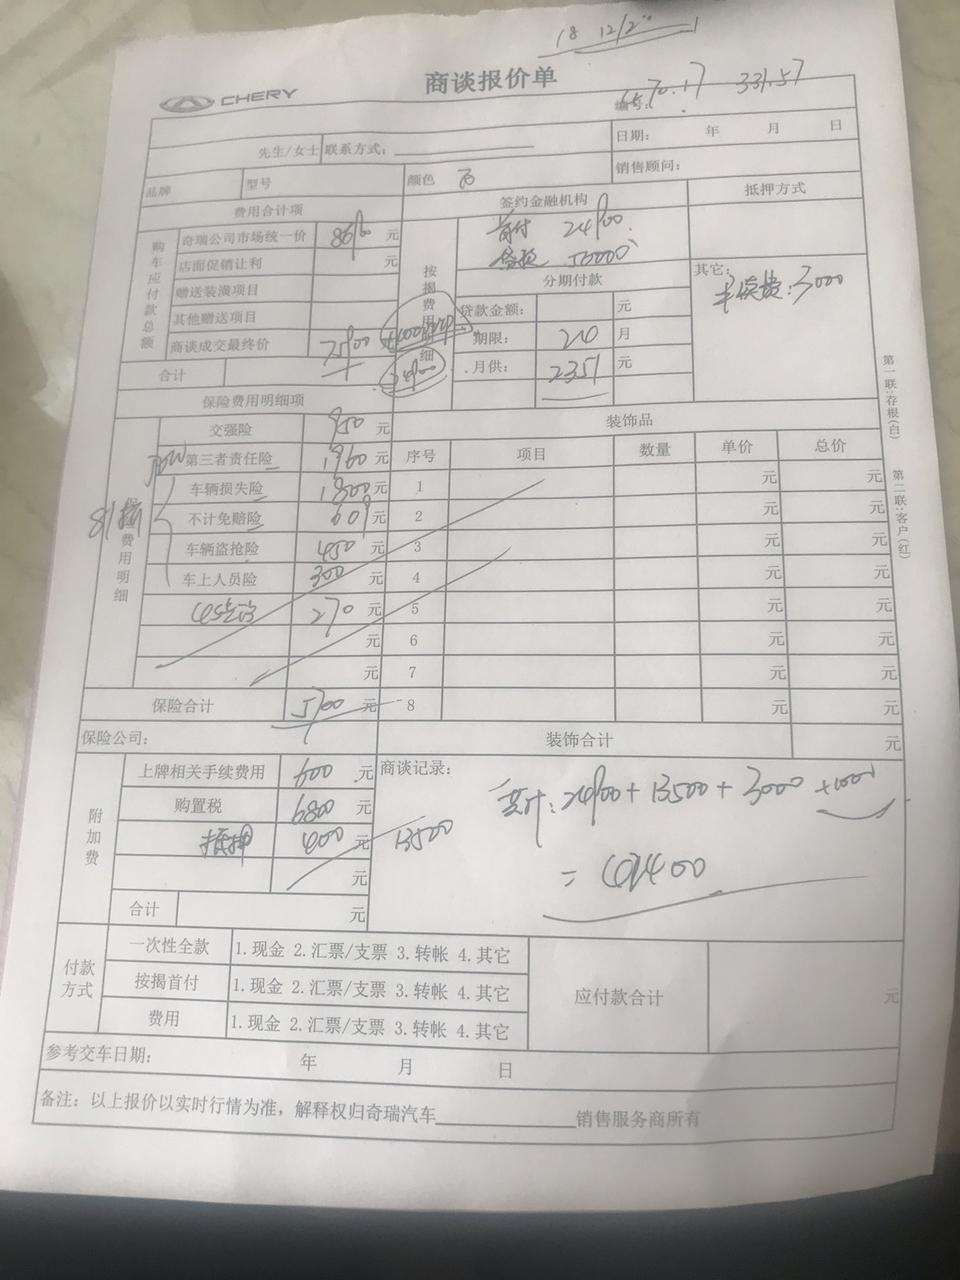 18 12/2
CHERY 商谈报价单
编号: 70.17 331.57
先生/女士 联系方式: 日期: 年 月 日
销售顾问:
品牌 型号 颜色 白
费用合计项 签约金融机构 抵押方式
购车应付款总额
奇瑞公司市场统一价 元
店面促销让利 元
赠送装潢项目
其他赠送项目
商谈成交最终价 元
合计
按揭费用明细
首付 24900
贷款
分期付款
贷款金额: 元
期限: 月
月供: 2351 元
其它:
手续费: 3000
第一联:存根(白)
第二联:客户(红)
保险费用明细项 装饰品
保险费用明细
交强险 950 元
第三者责任险 1960 元
车辆损失险 元
不计免赔险 元
车辆盗抢险 450 元
车上人员险 300 元
270 元
元
元
保险合计 5700 元
保险公司:
序号 项目 数量 单价 总价
1 元 元
2 元 元
3 元 元
4 元 元
5 元 元
6 元 元
7 元 元
8 元 元
装饰合计 元
附加费
上牌相关手续费用 600 元
购置税 6800 元
抵押 400 元 13500
元
合计 元
商谈记录:
共计: 24900+13500+3000
付款方式
一次性全款 1.现金 2.汇票/支票 3.转帐 4.其它
按揭首付 1.现金 2.汇票/支票 3.转帐 4.其它
费用 1.现金 2.汇票/支票 3.转帐 4.其它
应付款合计 元
参考交车日期: 年 月 日
备注:以上报价以实时行情为准，解释权归奇瑞汽车____________销售服务商所有